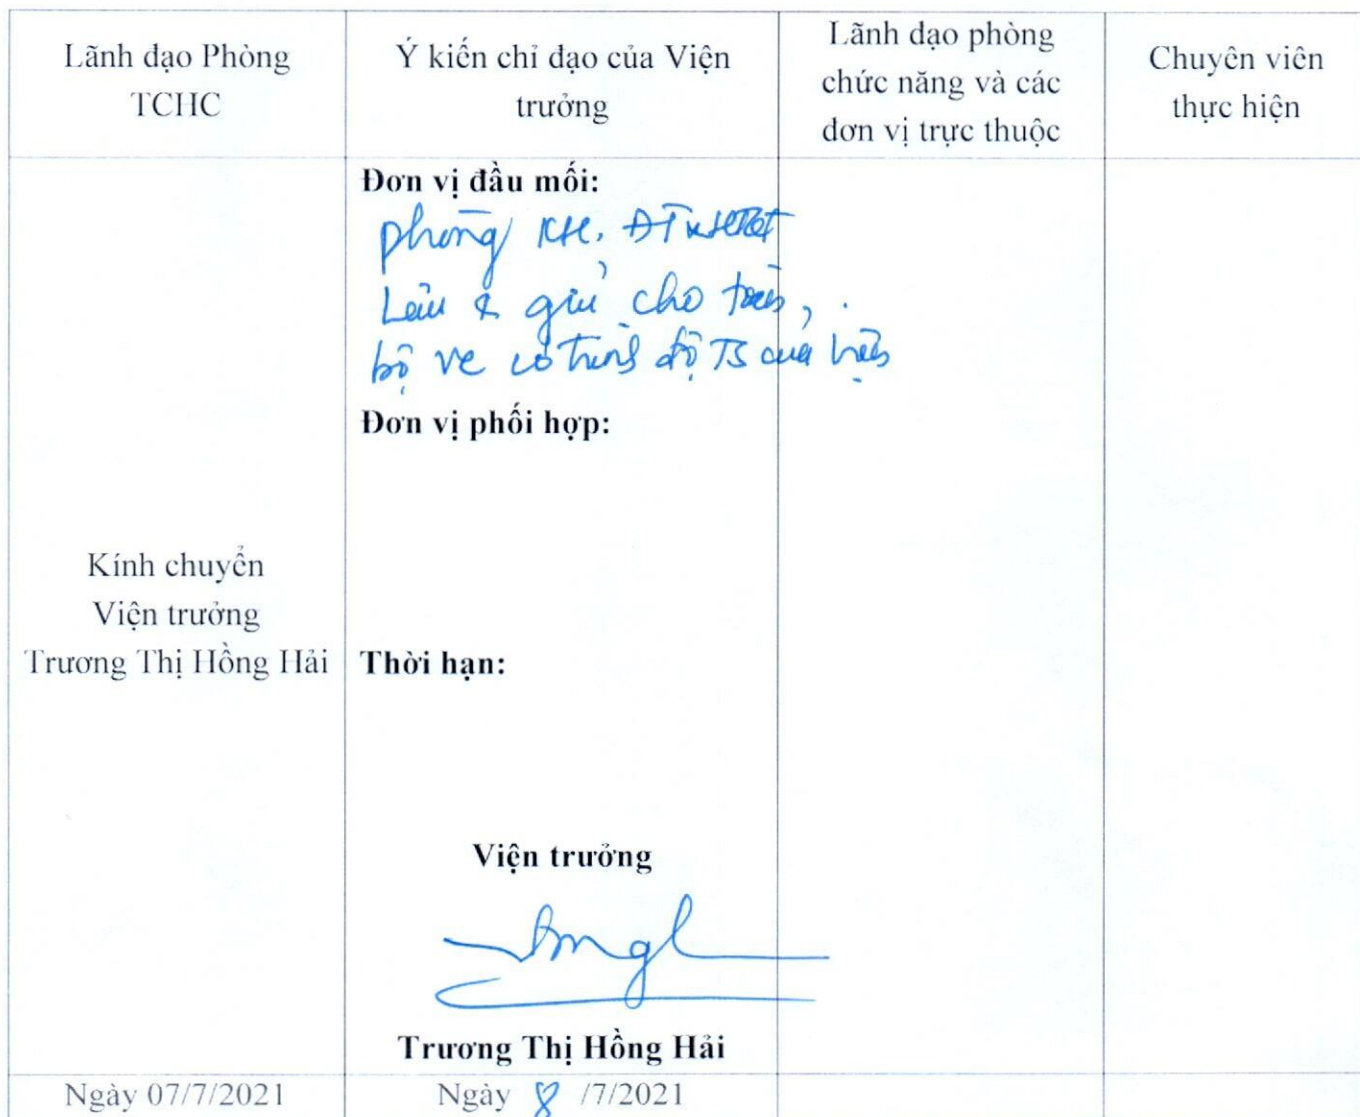 Lãnh đạo Phòng
TCHC
Ý kiến chỉ đạo của Viện
trưởng
Lãnh đạo phòng
chức năng và các
đơn vị trực thuộc
Chuyên viên
thực hiện
Kính chuyển
Viện trưởng
Trương Thị Hồng Hải
Đơn vị đầu mối:
phòng KH, ĐT
gửi cho toàn
bộ có trình độ TS của viện
Đơn vị phối hợp:
Thời hạn:
Viện trưởng
Trương Thị Hồng Hải
Ngày 07/7/2021
Ngày 8 /7/2021